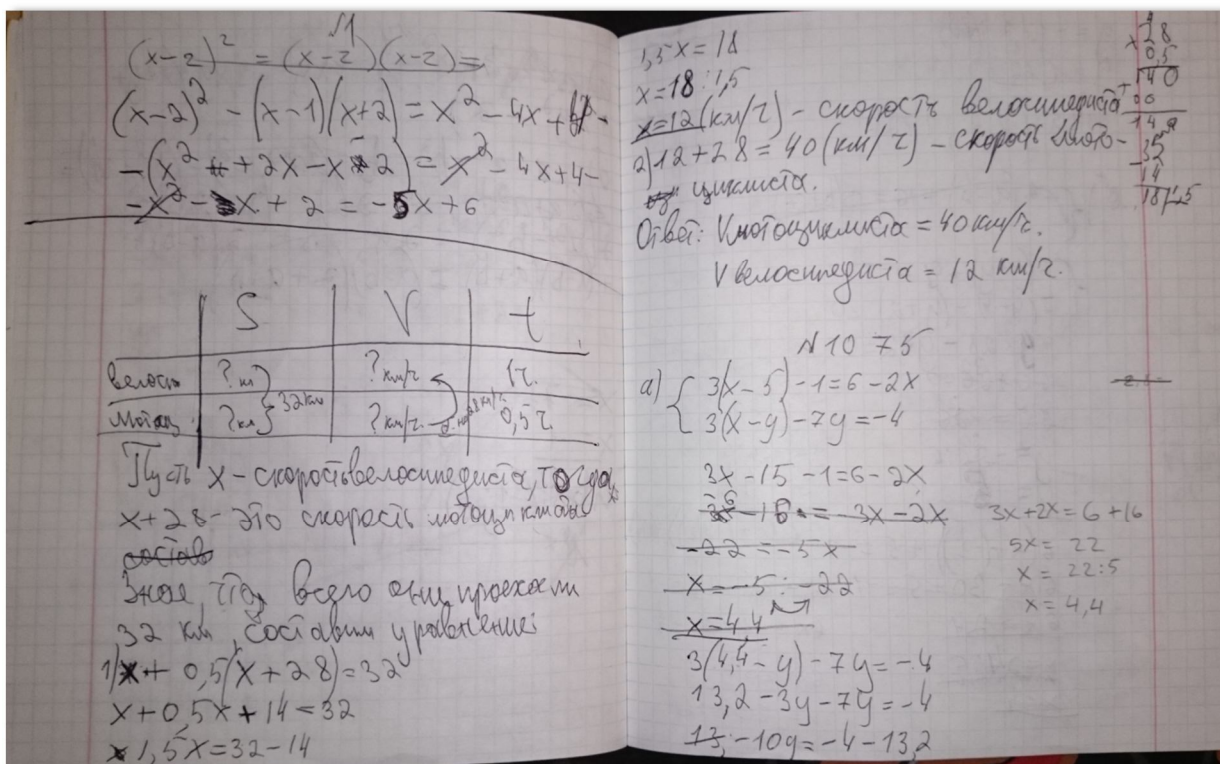 №1
(x-2)² = (x-2)(x-2)=
(x-2)² - (x-1)(x+2) = x² - 4x + 4 -
-(x² + 2x - x - 2) = x² - 4x + 4 -
- x² - x + 2 = -5x + 6
S V t
велос ? км ? км/ч 1ч.
32 км
мотоц ? км ? км/ч 0,5 ч.
Пусть x - скорость велосипедиста, тогда
x + 28 - это скорость мотоцикла
состав
Зная, что всего они проехали
32 км, составим уравнение:
1) x + 0,5(x + 28) = 32
x + 0,5x + 14 = 32
1,5x = 32 - 14
1,5x = 18
x = 18 : 1,5
x = 12 (км/ч) - скорость велосипедиста
2) 12 + 28 = 40 (км/ч) - скорость мото-
циклиста.
Ответ: V мотоциклиста = 40 км/ч.
V велосипедиста = 12 км/ч.
28
x 0,5
140
+ 00
14 0
32
- 14
18
№ 1075
а) { 3(x - 5) - 1 = 6 - 2x
3(x - y) - 7y = -4
3x - 15 - 1 = 6 - 2x
-22 = -5x
x = -5 : -22
x = 4,4
3x + 2x = 6 + 16
5x = 22
x = 22 : 5
x = 4,4
3(4,4 - y) - 7y = -4
13,2 - 3y - 7y = -4
13, -10y = -4 - 13,2